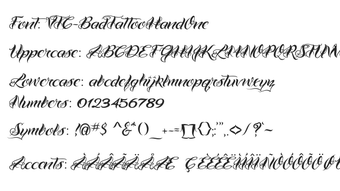 Font: VTC-BadTattooHandOne
Uppercase: ABCDEFGHIJKLMNOPQRSTUVW
Lowercase: abcdefghijklmnopqrstuvwxyz
Numbers: 0123456789
Symbols: !@#$ ^&*() _ +-=[]{};:'",.<>/?`~
Accents: ÀÁÂÃÄÅÆ ÇÈÉÊËÌÍÎÏÑÒÓÔÕÖØ